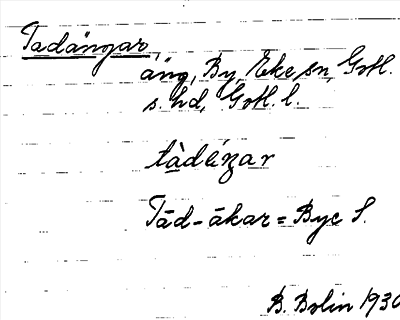 Tadängar,
äng, By, Eke sn, Gotl.
s. hd, Gotl. l.
tàdéŋar
Tād-ākar = Bye S.
B. Bolin 1930